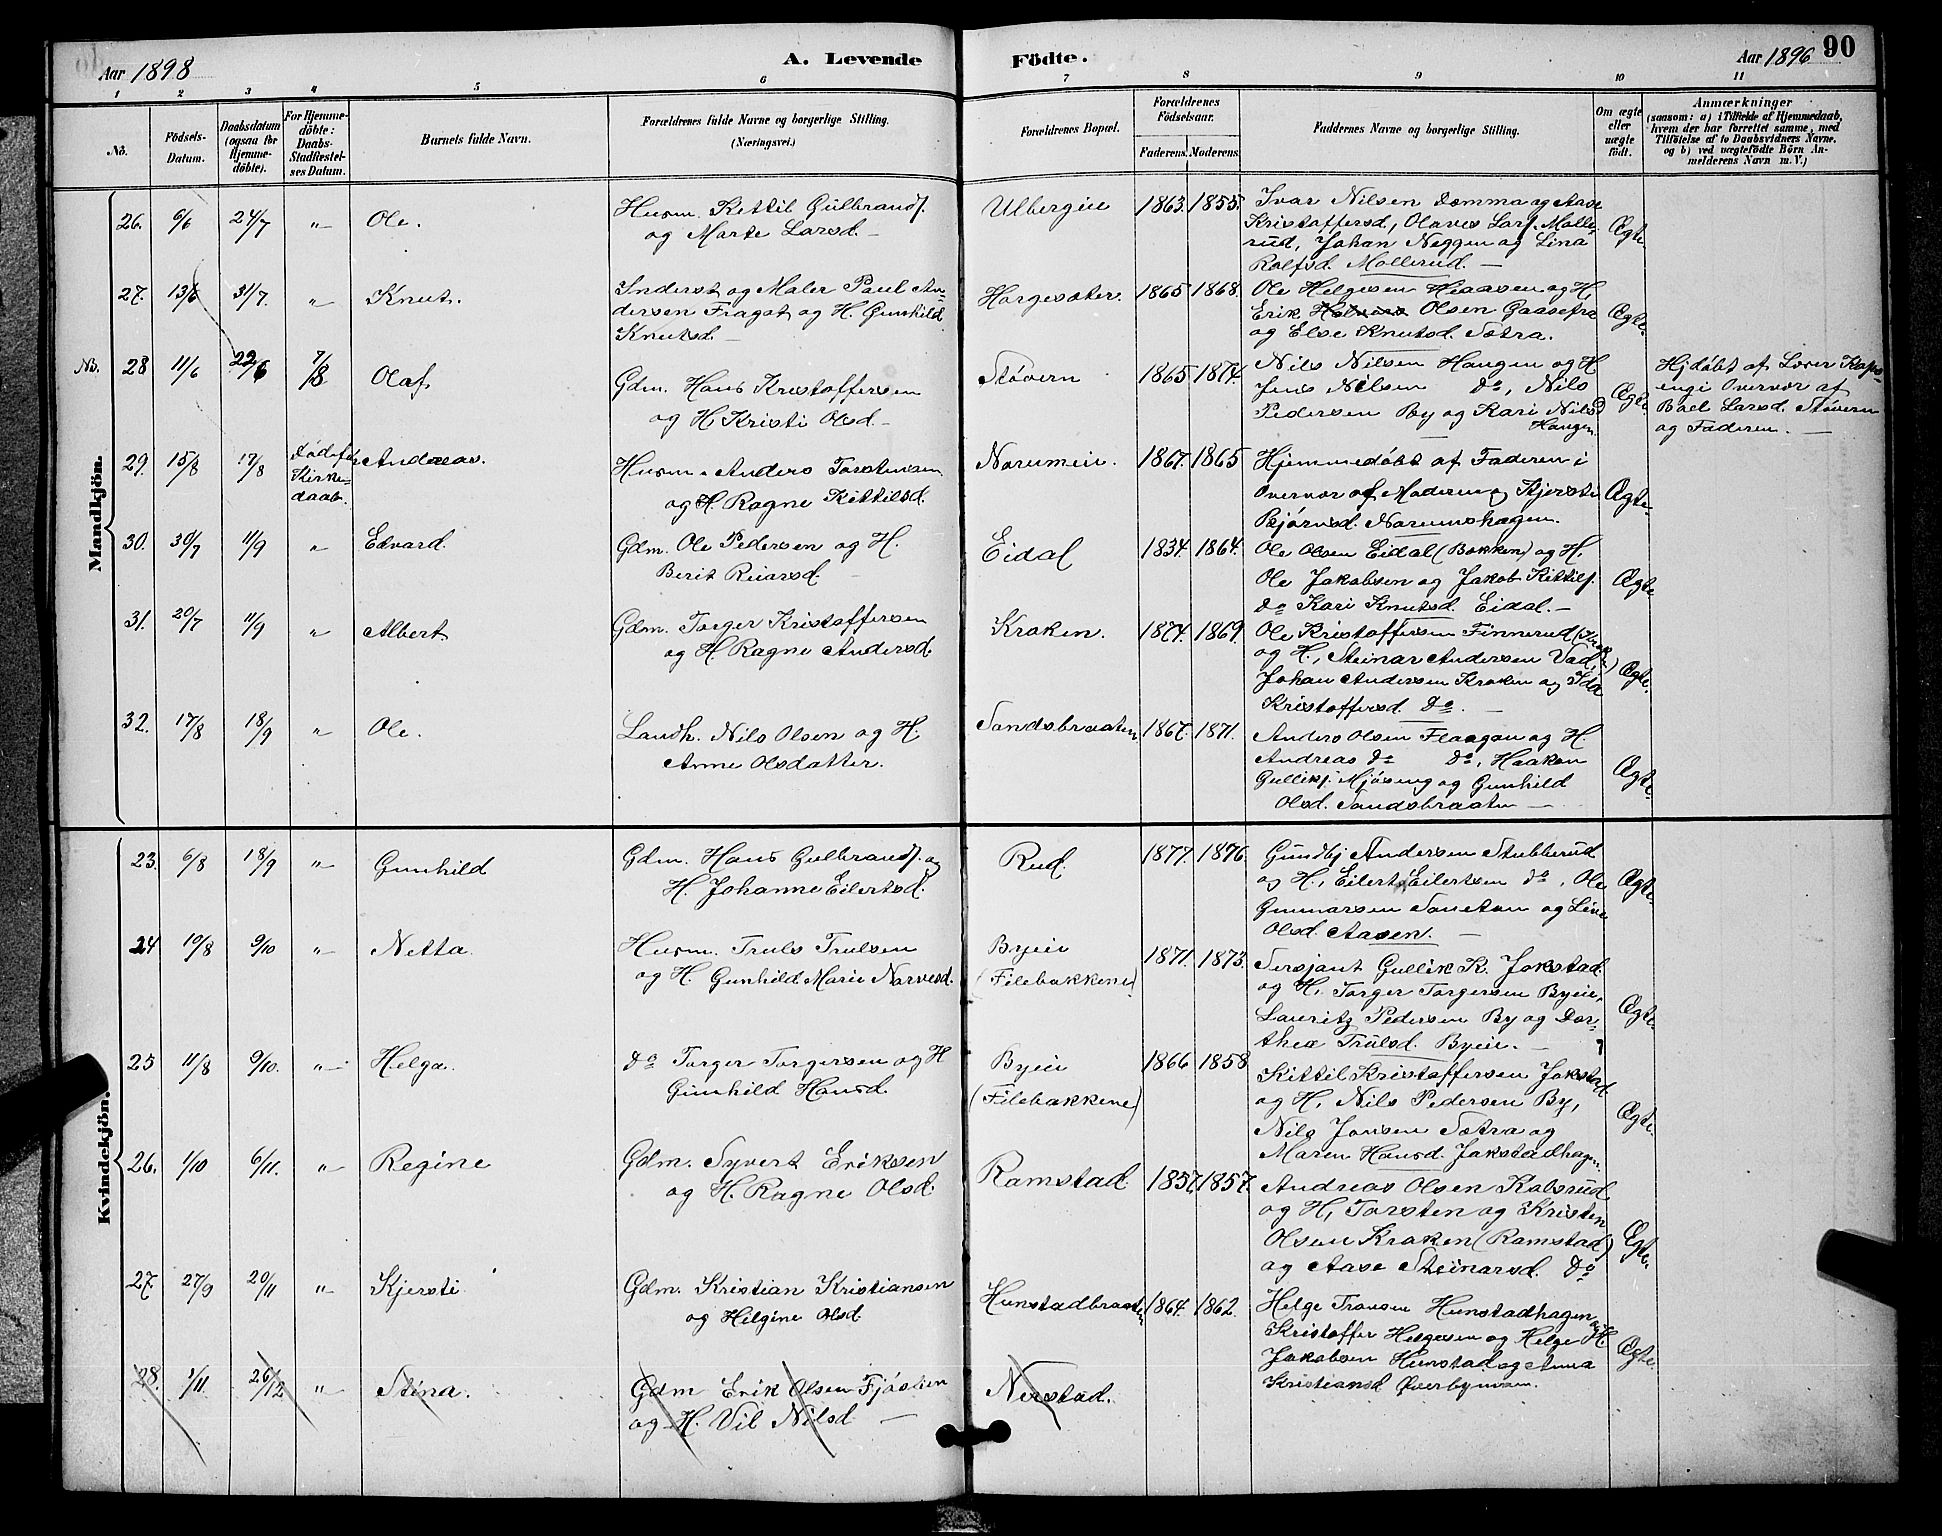 Aar 1898
A. Levende
Födte.
Aar 1896
90
1 2 3 4 5 6 7 8 9 10 11
No.
Födsels-
Datum.
Daabsdatum
(ogsaa for
Hjemme-
döbte).
For Hjemme-
döbte:
Daabs-
Stadfæstel-
ses Datum.
Barnets fulde Navn.
Forældrenes fulde Navne og borgerlige Stilling.
(Næringsvei.)
Forældrenes Bopæl.
Forældrenes
Födselsaar.
Faderens. Moderens.
Faddernes Navne og borgerlige Stilling.
Om ægte
eller
uægte
födt.
Anmærkninger
(saasom: a) i Tilfælde af Hjemmedaab,
hvem der har forrettet samme, med
Tilföielse af to Daabsvidners Navne,
og b) ved uægtefödte Börn An-
melderens Navn m. V.)
Mandkjön.
26. 6/6 24/7 " Ole.
Husm. Kittil Gulbrands.
og Marte Larsd. —
Ulbergeie 1863. 1855.
Ivar Nilsen Domma og Aase
Kristoffersd, Olaves Lars. Molle-
rud, Johan Neggen og Lina
Rolfsd. Mollerud. —
Ægte.
27. 13/6 31/7. " Knut.
Inderst og Maler Paul An-
dersen Fragot og H. Gunhild
Knutsd. —
Horgesæter. 1865 1868.
Ole Helgesen Heaasen og H,
Erik Olsen Gaasefra
og Else Knutsd. Sætra.
Ægte.
NB. 28 11/6 22/6 7/8 Olaf.
Gdm. Hans Kristoffersen
og H. Kristi Olsd. —
Støvern 1865 1874.
Nils Nilsen Haugen og H
Jens Nilsen Do, Nils
Pedersen By og Kari Nilsd
Haugen.
Ægte.
Hjdøbt af
engi Overvær af
Larsd. Støvern
og Faderen. —
29. 15/8 17/8 Død før
Kirke-
daab. Andreas.
Husm. Anders Torstensen
og H. Ragne Kittilsd.
Narumeie. 1867. 1865
Hjemmedøbt af Faderen i
Overvær af Moderen og Kjersti
Bjørnsd. Narumshagen.
Ægte.
30. 30/7 11/9 " Edvard.
Gdm. Ole Pedersen og H.
Berit Reiarsd. —
Eidal 1834. 1864.
Ole Olsen Eidal (Bakken) og H,
Ole Jakobsen og Jakob Kittils.
Do Kari Knutsd. Eidal. —
Ægte
31. 20/7 11/9 " Albert
Gdm. Torger Kristoffersen
og H. Ragne Andersd.
Kraken. 1874. 1869.
Ole Kristoffersen Finnerud
og H., Steinar Andersen Vad,
Johan Andersen Kraken og Ida
Kristoffersd. Do. —
Ægte.
32. 17/8 18/9 " Ole.
Landh. Nils Olsen og H.
Anne Olsdatter.
Sandsbraaten 1867. 1871.
Anders Olsen Flaagan og H.
Andreas Do Do, Haakon
Gulliks. Mjøseng og Gunhild
Olsd. Sandsbraaten —
Ægte.
Kvindekjön.
23. 6/8 18/9 " Gunhild
Gdm. Hans Gulbrands. og
H. Johanne Eilertsd.
Rud. 1877. 1876.
Andersen Stubberud
og H, Eilert Eilertsen do, Ole
Gunnarsen og
Olsd. Aasen. —
Ægte.
24 10/8 9/10 " Netta.
Husm. Truls Trulsen
og H. Gunhild Marie Narvesd.
Byeie
(Filebakkene) 1871. 1873.
Sersjant Gullik K. Jokstad
og H, Torger Torgersen Byeie,
Lauritz Pedersen By og Dor-
thea Trulsd. Byeie. —
Ægte.
25 11/8 9/10. " Helga.
Do Torger Torgersen og H
Gunhild Hansd.
Byeie
(Filebakkene) 1866 1858
Kittil Kristoffersen Jokstad
og H, Nils Pedersen By,
Nils Jonsen Sætra og
Maren Hansd. Jokstadhagen.
Ægte.
26. 1/10 6/11. " Regine
Gdm. Syvert Eriksen
og H. Ragne Olsd.
Ramstad. 1857. 1857.
Andreas Olsen Kolsrud
og H, Torsten og Kristen
Olsen Kraken (Ramstad)
og Aase Steinarsd. Do
Ægte.
27. 27/9 20/11 " Kjersti.
Gdm. Kristian Kristiansen
og Helgine Olsd
Hunstadbraaten 1864. 1862.
Helge Hunstadhagen og H.
Kristoffer Helgesen og Helge
Jakobsen Hunstad og Anna
Kristiansd Øverbymoen.
Ægte.
28. 1/11. 26/12 " Stina.
Gdm Erik Olsen Fjøslien
og H. Vil Nilsd —
Nerstad.